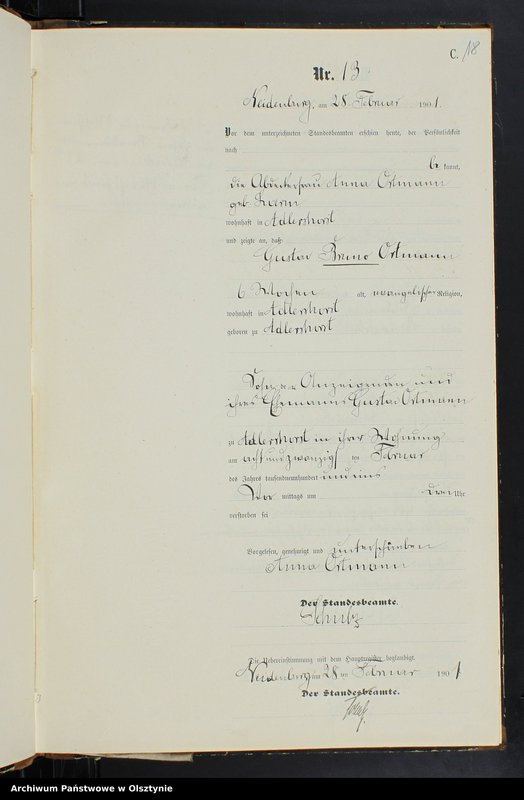 C. 18
Nr. 13
Neidenburg, am 28 Februar 1901.
Vor dem unterzeichneten Standesbeamten erschien heute, der Persönlichkeit
nach
be kannt,
die Abdeckerfrau Anna Ostmann
geb.
wohnhaft in Adlershorst
und zeigte an, daß
Gustav Bruno Ostmann
6 Wochen alt, evangelischer Religion,
wohnhaft in Adlershorst
geboren zu Adlershorst
Sohn der Anzeigenden und
ihres Ehemanns Gustav Ostmann
zu Adlershorst in ihrer Wohnung
am acht und zwanzigsten Februar
des Jahres tausendneunhundert und eins
Vor mittags um drei Uhr
verstorben sei
Vorgelesen, genehmigt und unterschrieben
Anna Ostmann
Der Standesbeamte.
Schulz
Die Uebereinstimmung mit dem Hauptregister beglaubigt.
Neidenburg am 28 ten Februar 1901
Der Standesbeamte.
Archiwum Państwowe w Olsztynie